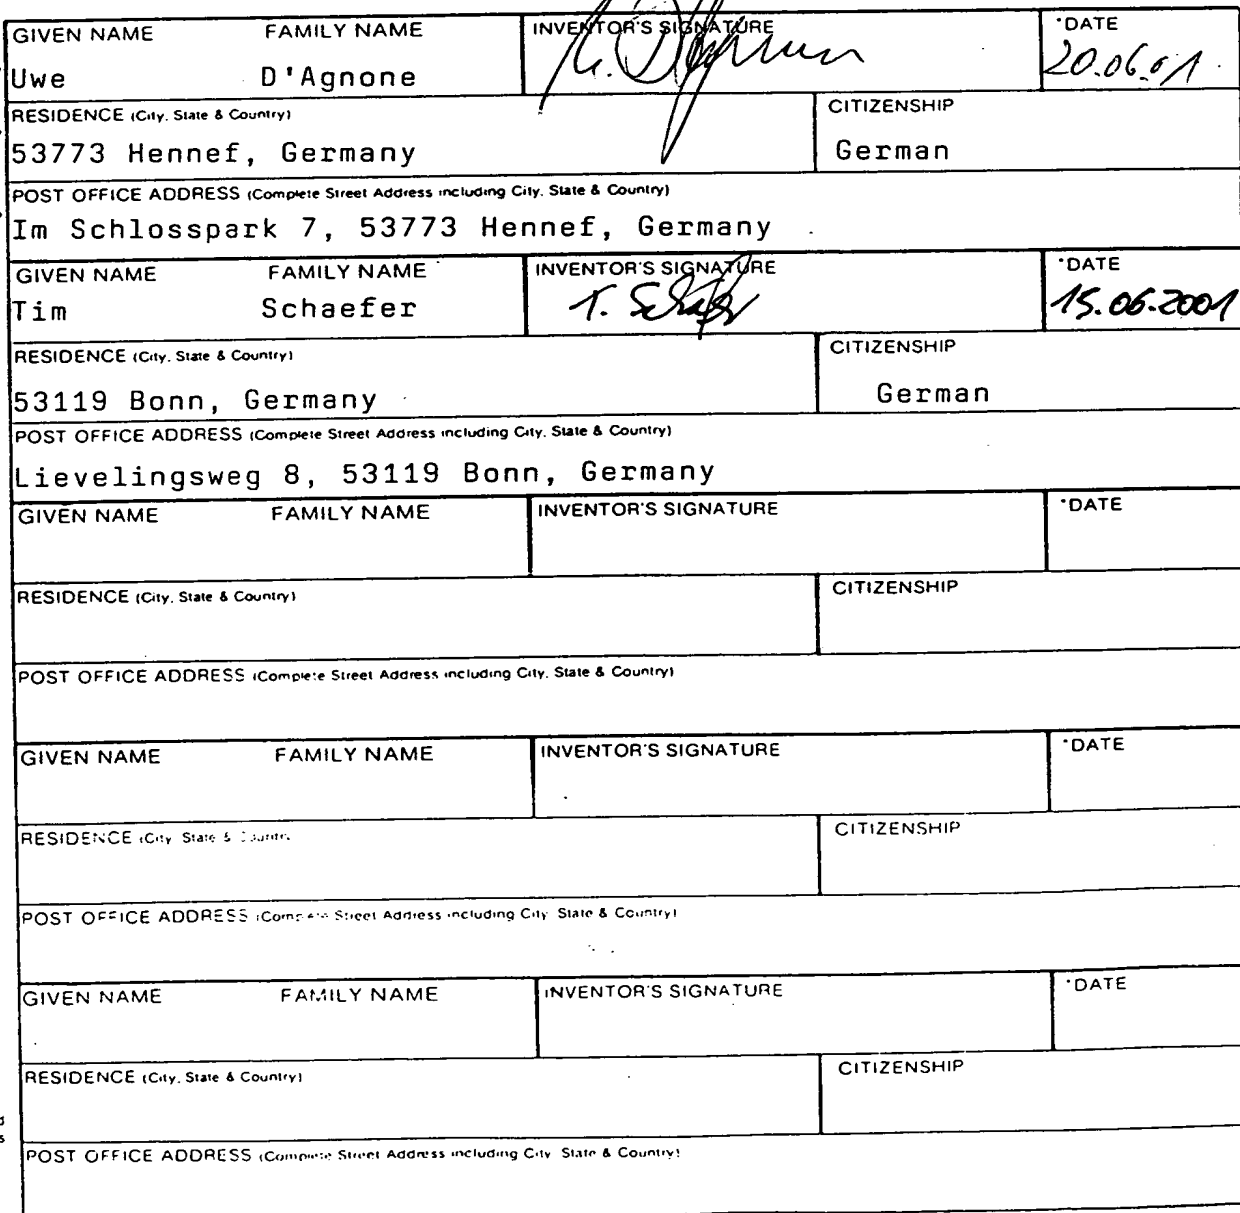 GIVEN NAME FAMILY NAME INVENTOR'S SIGNATURE *DATE
Uwe D'Agnone U. D'Agnone 20.06.01
RESIDENCE (City, State & Country) CITIZENSHIP
53773 Hennef, Germany German
POST OFFICE ADDRESS (Complete Street Address including City, State & Country)
Im Schlosspark 7, 53773 Hennef, Germany
GIVEN NAME FAMILY NAME INVENTOR'S SIGNATURE *DATE
Tim Schaefer T. Schäfer 15.06.2001
RESIDENCE (City, State & Country) CITIZENSHIP
53119 Bonn, Germany German
POST OFFICE ADDRESS (Complete Street Address including City, State & Country)
Lievelingsweg 8, 53119 Bonn, Germany
GIVEN NAME FAMILY NAME INVENTOR'S SIGNATURE *DATE
RESIDENCE (City, State & Country) CITIZENSHIP
POST OFFICE ADDRESS (Complete Street Address including City, State & Country)
GIVEN NAME FAMILY NAME INVENTOR'S SIGNATURE *DATE
RESIDENCE (City, State & Country) CITIZENSHIP
POST OFFICE ADDRESS (Complete Street Address including City, State & Country)
GIVEN NAME FAMILY NAME INVENTOR'S SIGNATURE *DATE
RESIDENCE (City, State & Country) CITIZENSHIP
POST OFFICE ADDRESS (Complete Street Address including City, State & Country)